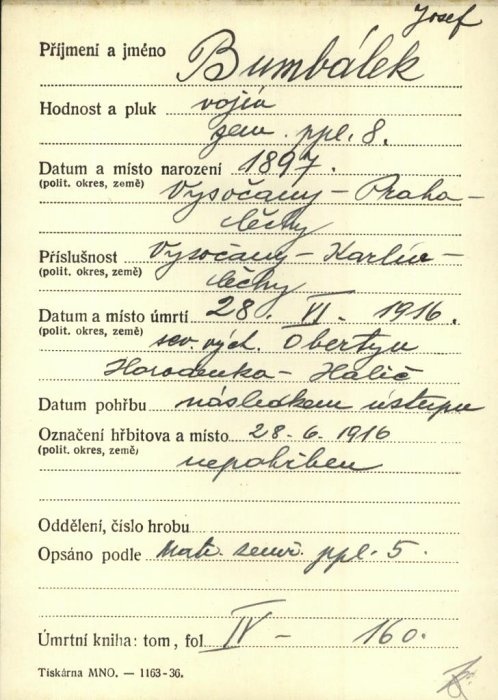 Josef
Příjmení a jméno Bumbálek
Hodnost a pluk vojín
zem. ppl. 8.
Datum a místo narození 1897.
(polit. okres, země) Vysočany - Praha -
Čechy
Příslušnost Vysočany - Karlín -
(polit. okres, země) Čechy
Datum a místo úmrtí 28. VI. 1916.
(polit. okres, země) sev. vých. Obertyn
Horodenka - Halič
Datum pohřbu následkem ústupu
Označení hřbitova a místo 28-6-1916
(polit. okres, země) nepohřben
Oddělení, číslo hrobu
Opsáno podle Matr. zemř. ppl. 5.
Úmrtní kniha: tom, fol IV - 160.
Tiskárna MNO. — 1163-36.